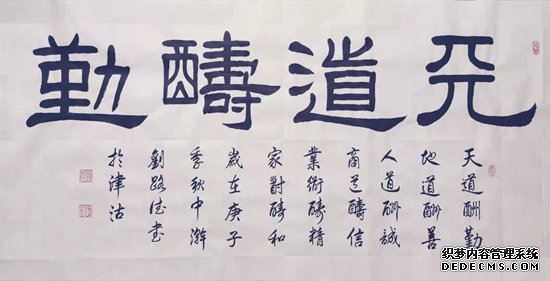 天道醻勤
天道酬勤
地道酬善
人道酬誠
商道醻信
業術醻精
家醻和
歲在庚子
季秋中澣
劉路書
於津沽
织梦内容管理系统
DEDECMS.COM